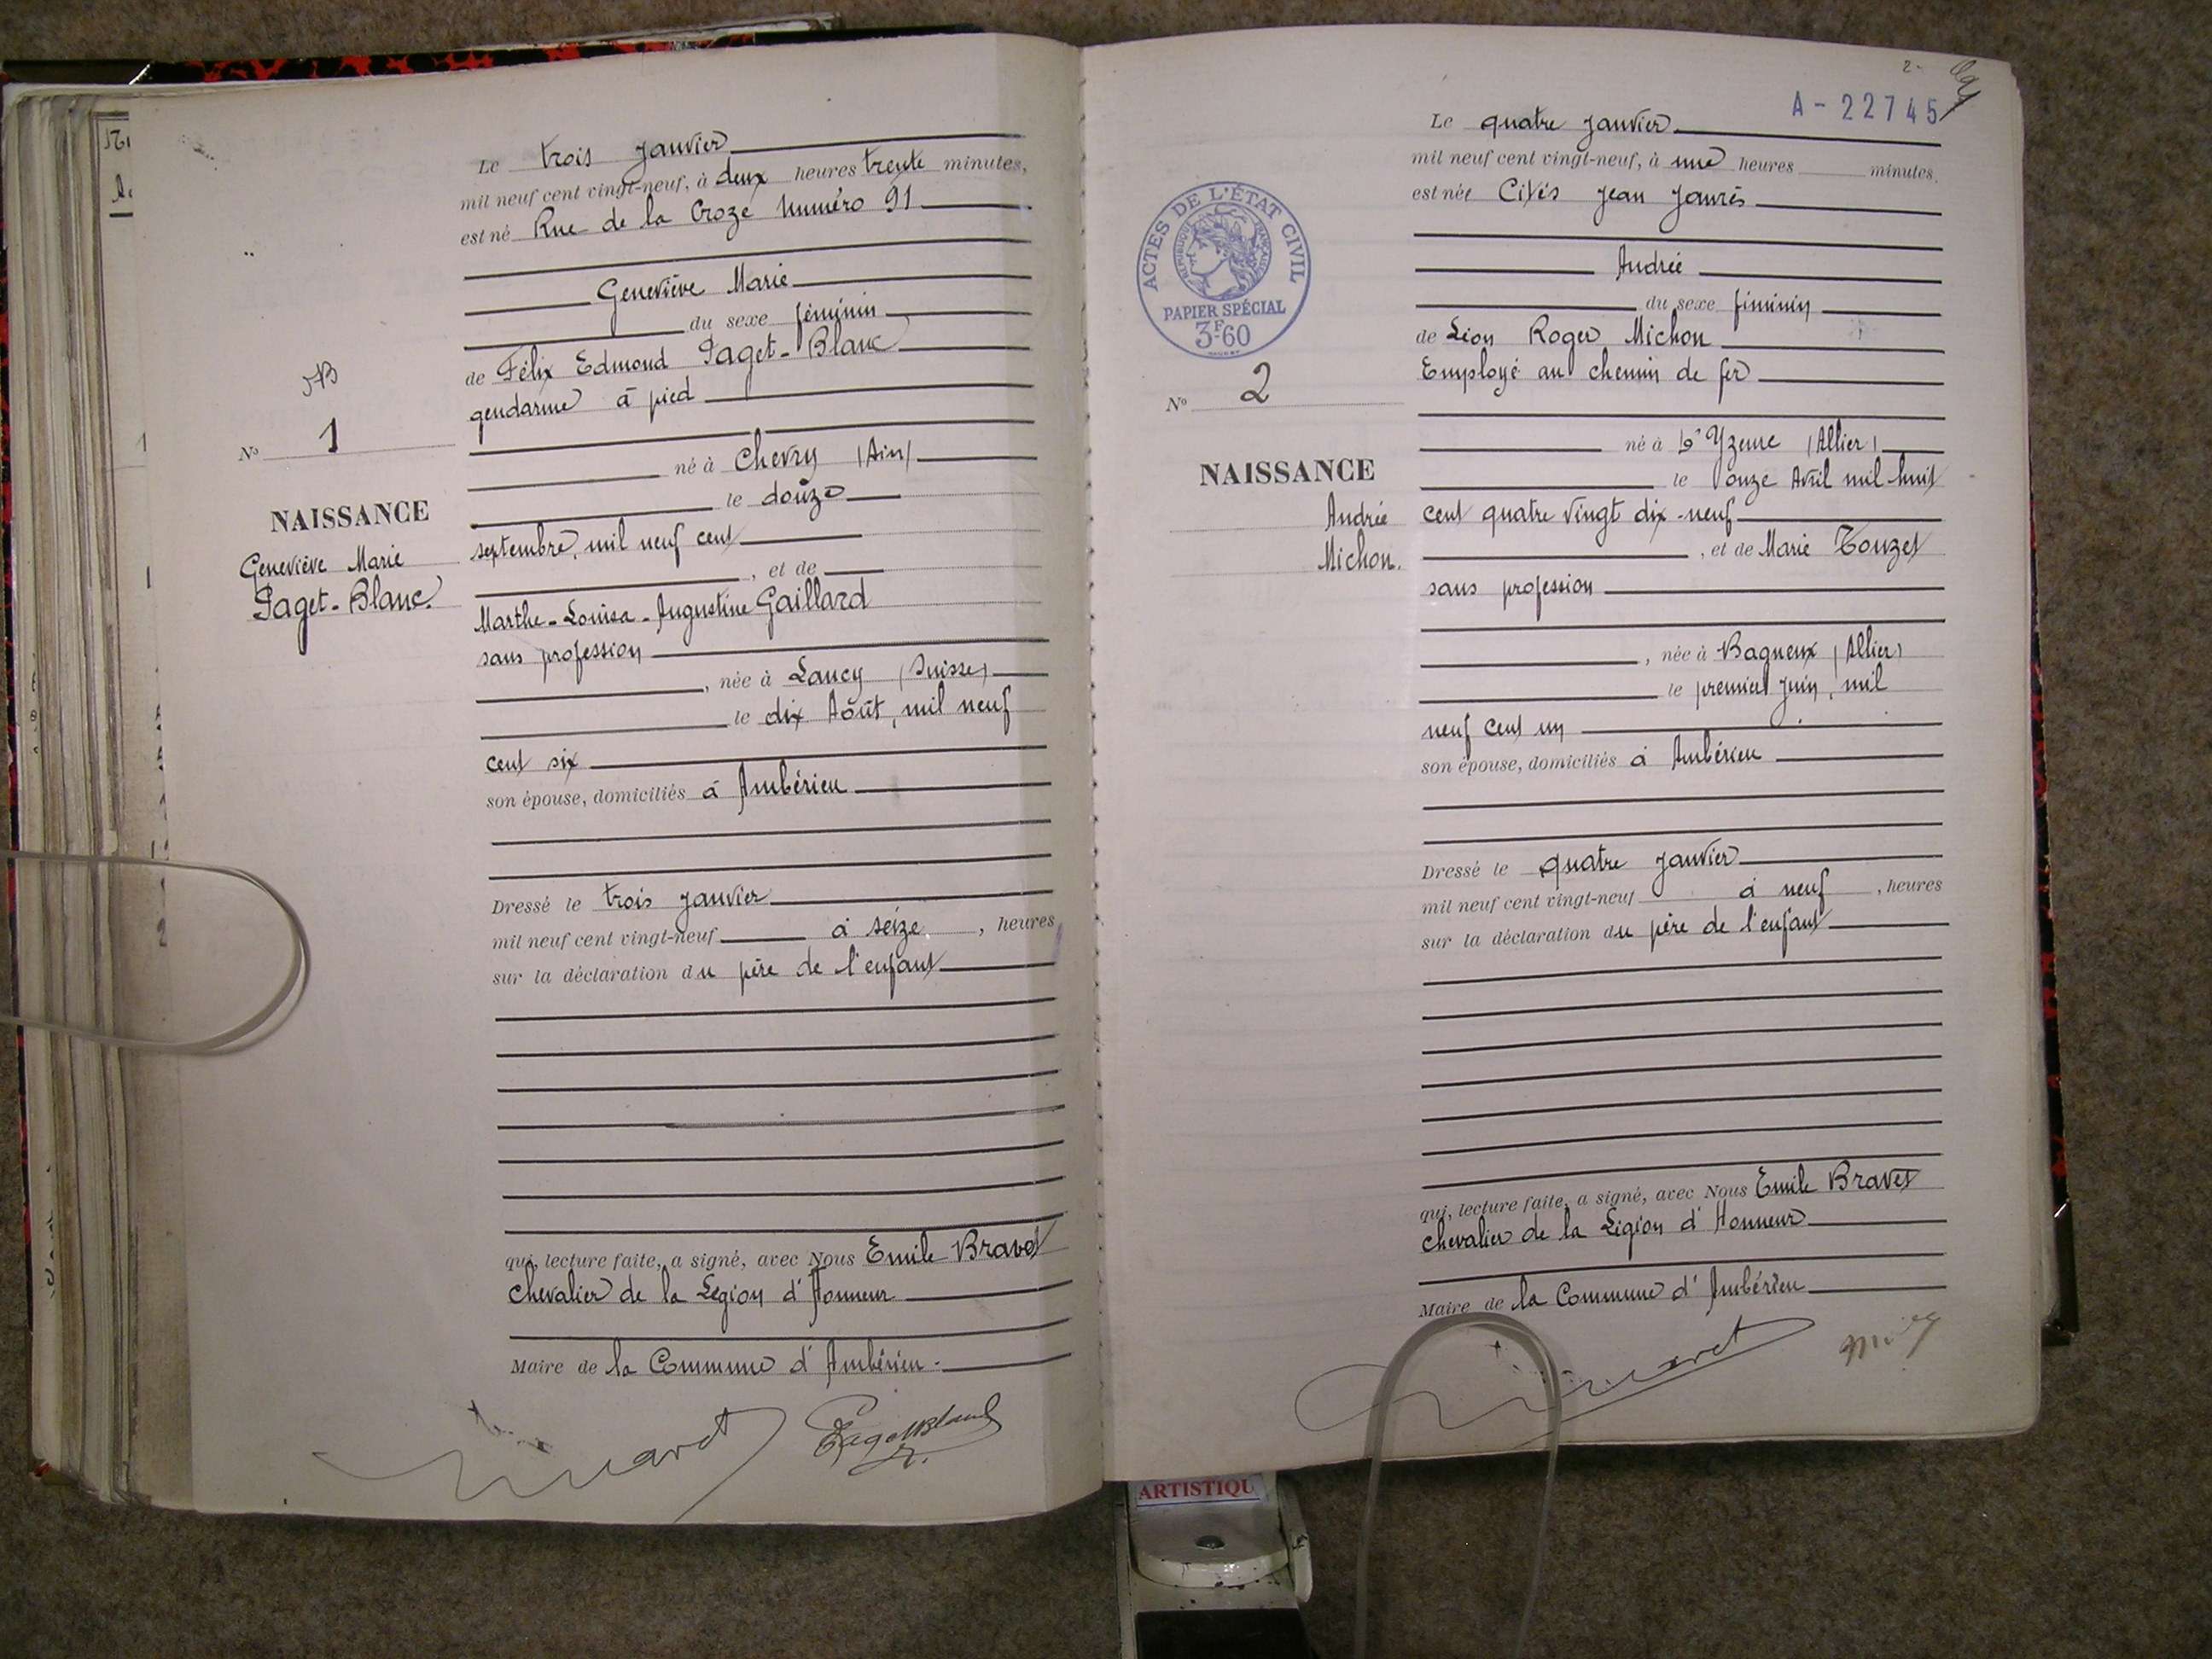 NB
N° 1
NAISSANCE
Geneviève Marie
Paget-Blanc
Le trois janvier
mil neuf cent vingt-neuf, à deux heures trente minutes,
est né Rue de la Croze Numéro 91
Geneviève Marie
du sexe féminin
de Félix Edmond Paget-Blanc
gendarme à pied
né à Chevry (Ain)
le douze
septembre, mil neuf cent
, et de
Marthe-Louisa-Augustine Gaillard
sans profession
, née à Lancy (Suisse)
le dix Août, mil neuf
cent six
son épouse, domiciliés à Ambérieu
Dressé le trois janvier
mil neuf cent vingt-neuf à seize, heures
sur la déclaration du père de l'enfant
qui, lecture faite, a signé, avec Nous Emile Bravet
Chevalier de la Légion d'Honneur
Maire de la Commune d'Ambérieu.
Bravet
PagetBlanc
2-
A-22745
ACTES DE L'ÉTAT CIVIL
RÉPUBLIQUE FRANÇAISE
PAPIER SPÉCIAL
3F60
N° 2
NAISSANCE
Andrée
Michon.
Le quatre janvier
mil neuf cent vingt-neuf, à une heures minutes,
est née Cités Jean Jaurès
Andrée
du sexe féminin
de Léon Roger Michon
Employé au chemin de fer
né à Yzeure (Allier)
le onze Avril mil huit
cent quatre vingt dix-neuf
, et de Marie Touzet
sans profession
, née à Bagneux (Allier)
le premier juin, mil
neuf cent un
son épouse, domiciliés à Ambérieu
Dressé le quatre janvier
mil neuf cent vingt-neuf à neuf, heures
sur la déclaration du père de l'enfant
qui, lecture faite, a signé, avec Nous Emile Bravet
Chevalier de la Légion d'Honneur
Maire de la Commune d'Ambérieu
Bravet
ARTISTIQU